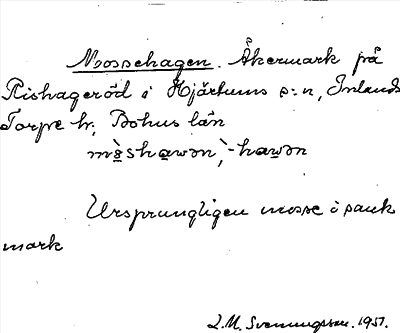 Mossehagen. Åkermark på
Rishageröd i Hjärtums s:n, Inlands
Torpe hr, Bohus län
mòshawən, -hawən
Ursprungligen mosse i sank
mark
L.M. Svenungsson. 1951.